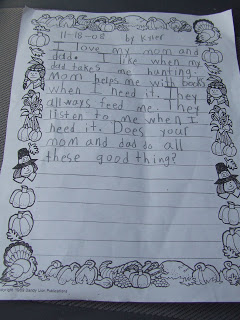 11-18-08 by Koler
I love my mom and
dad. I like when my
dad takes me hunting.
Mom helps me with books
when I need it. They
always feed me. They
listen to me when I
need it. Does your
mom and dad do all
these good thing?